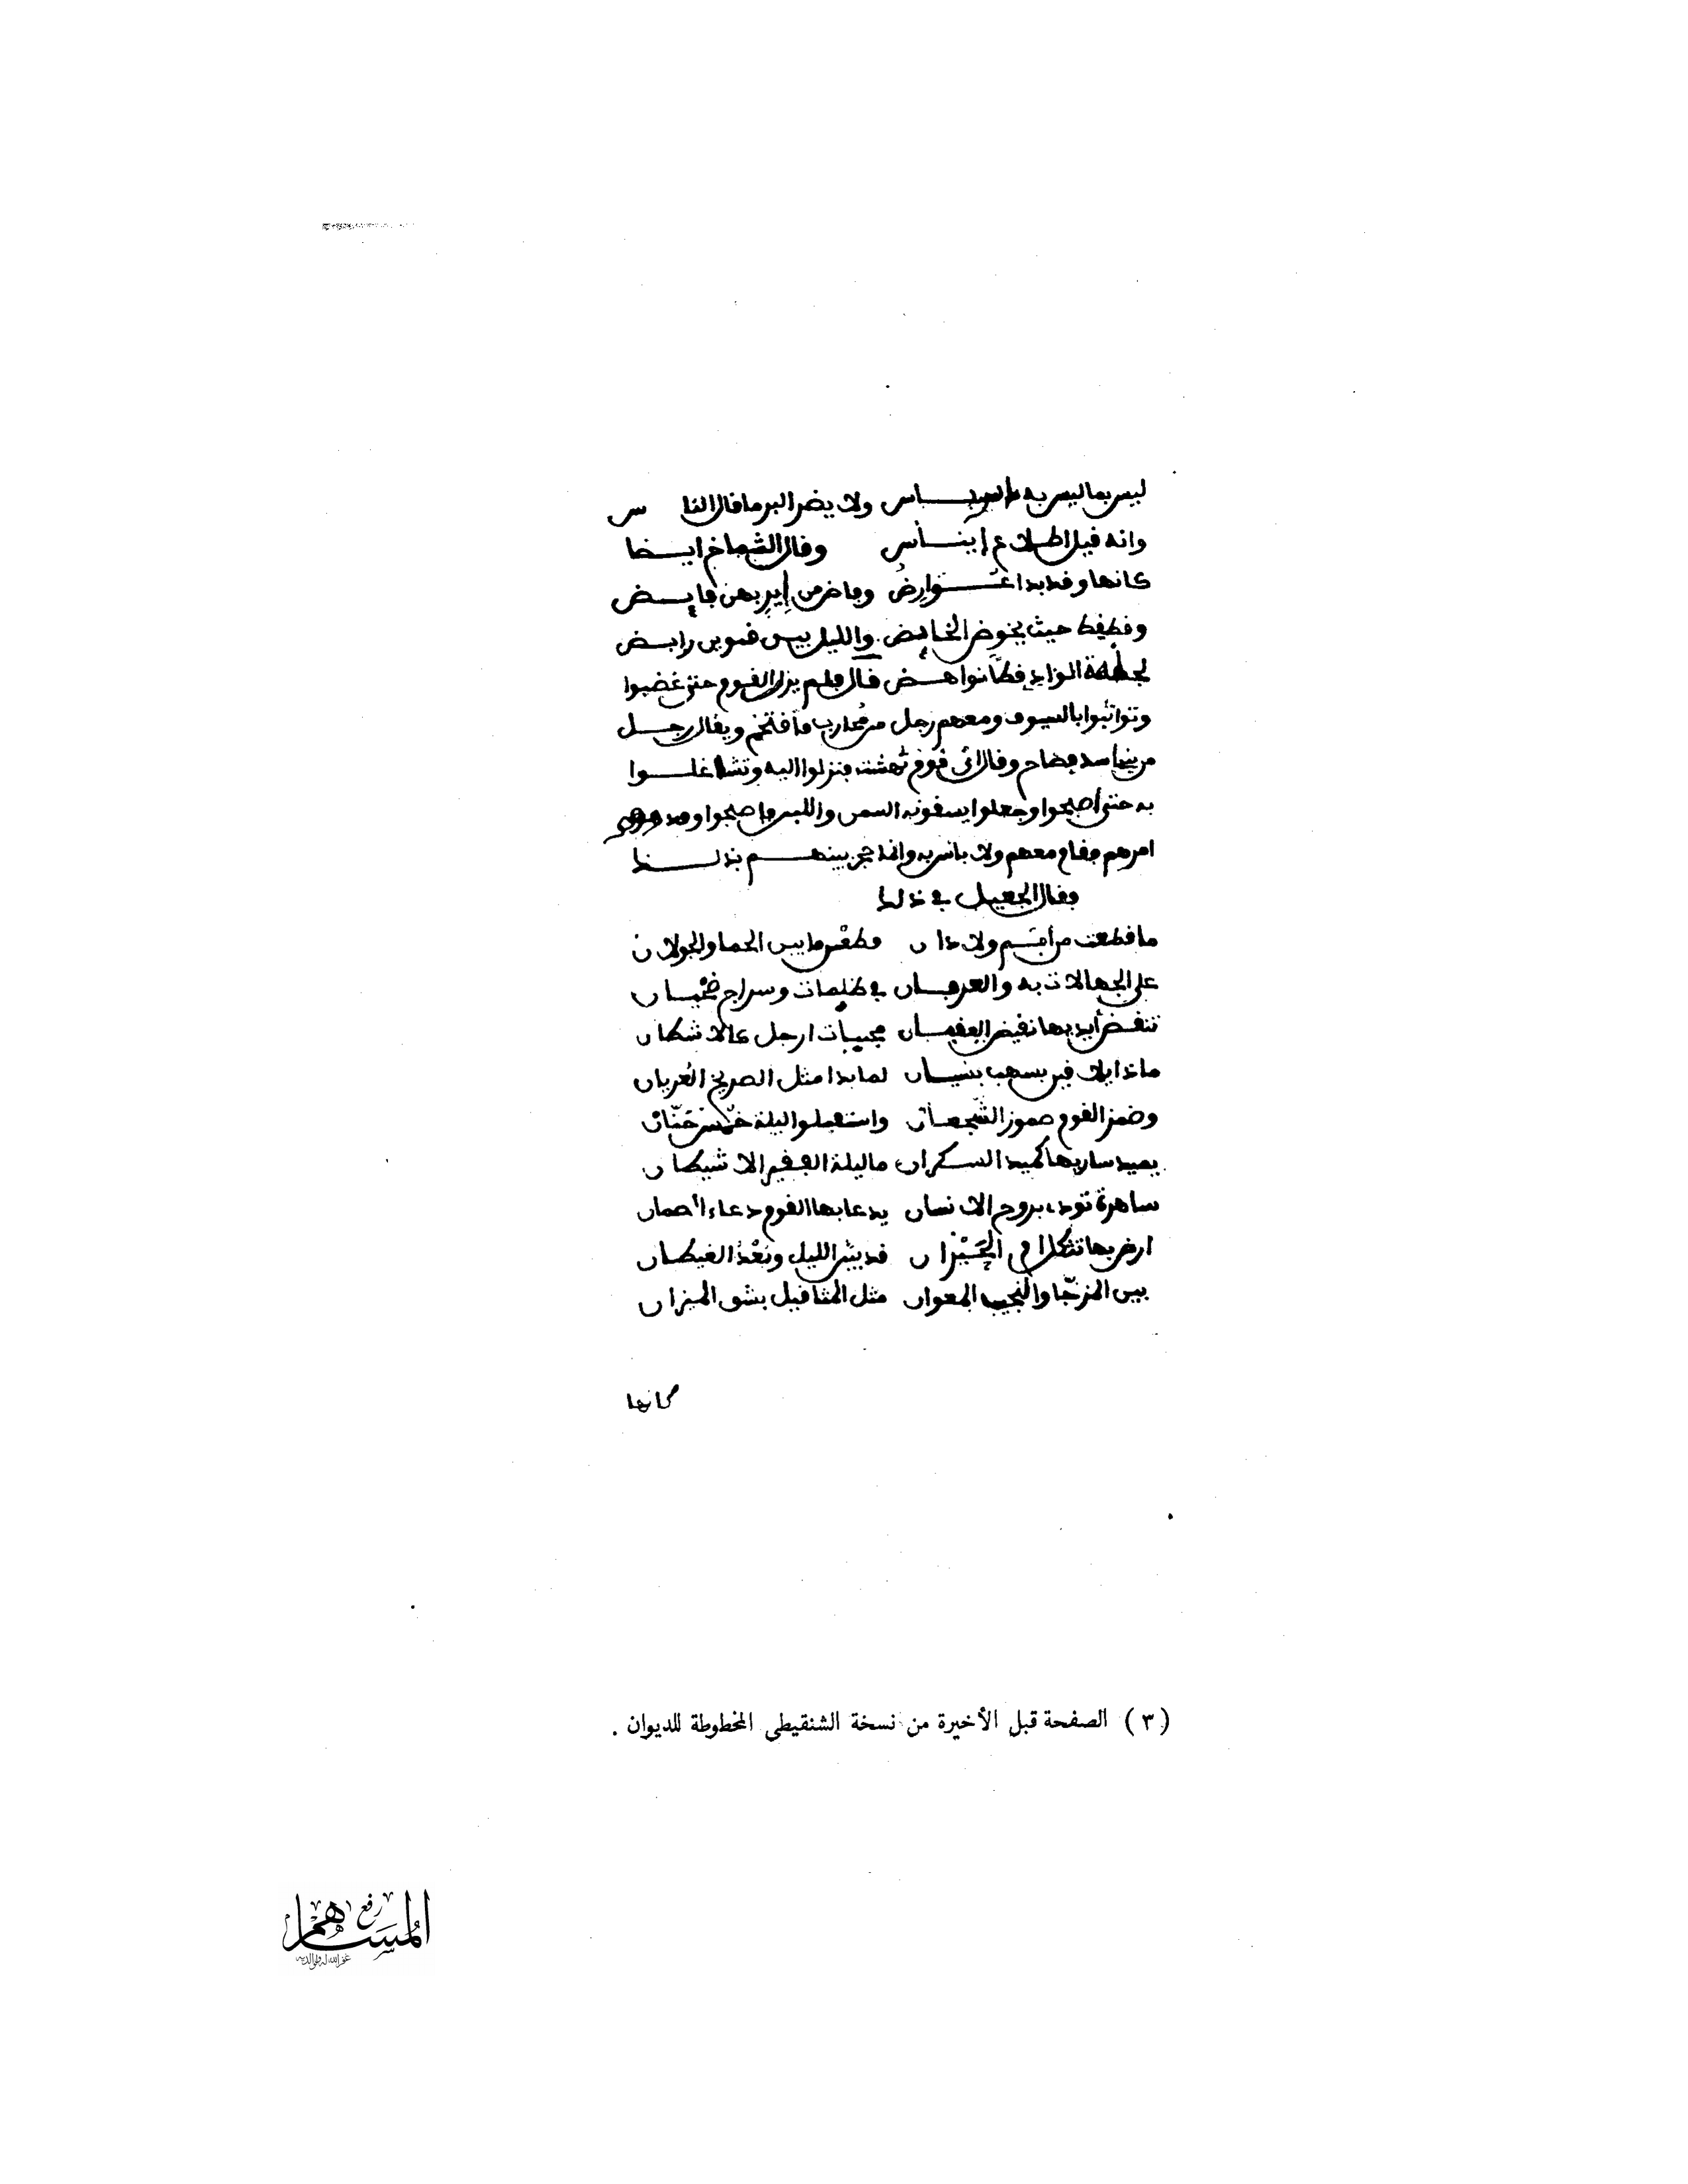 ليس بما ليس به باس ولا يضر البر ما قال الناس
وانه قبل اطلاع إيناس وقال الشماخ ايضا
كانها وقد بدا عوارض وفاض من إير بهن فايض
وقطقط حيث يخوض الخايض والليل بين قنوين رابض
بجلهة الوادي قطا نواهض قال فلم يزل القوم حتى غضبوا
وتواثبوا بالسيوف ومعهم رجل من محارب فاقتحم ويقال رجل
من بني اسد فصاح وقال اي قوم نهشت فنزلوا اليه وتشاغلوا
به حتى أصبحوا وجعلوا يسقونه السمن واللبن فاصبحوا وقد
امرهم فقام معهم ولا باس به وانما حجز بينهم بذلك
فقال الجعيل في ذلك
ما قطعت من أمم ولا دان قطعن ما بين الحما والجولان
على الجهالات به والعرفان في ظلمات وسراج
تنفض أيديها نقيض العقبان ارجل كالاشطان
لما بدا مثل الصريخ العريان
وضمز القوم ضموز الشجعان واستقبلوا ليلة خمس حنان
يميد ساريها كميد السكران ما ليلة الفقير الا شيطان
ساهرة تودي بروح الانسان يدعا بها القوم دعاء الصمان
ارض بها الليل ونعد الغيطان
بين المزجا والنجيب المعوان مثل المثاقيل بشق الميزان
كانها
(٣) الصفحة قبل الأخيرة من نسخة الشنقيطي المخطوطة للديوان .
رفع
المساهم
غفر الله له ولوالديه